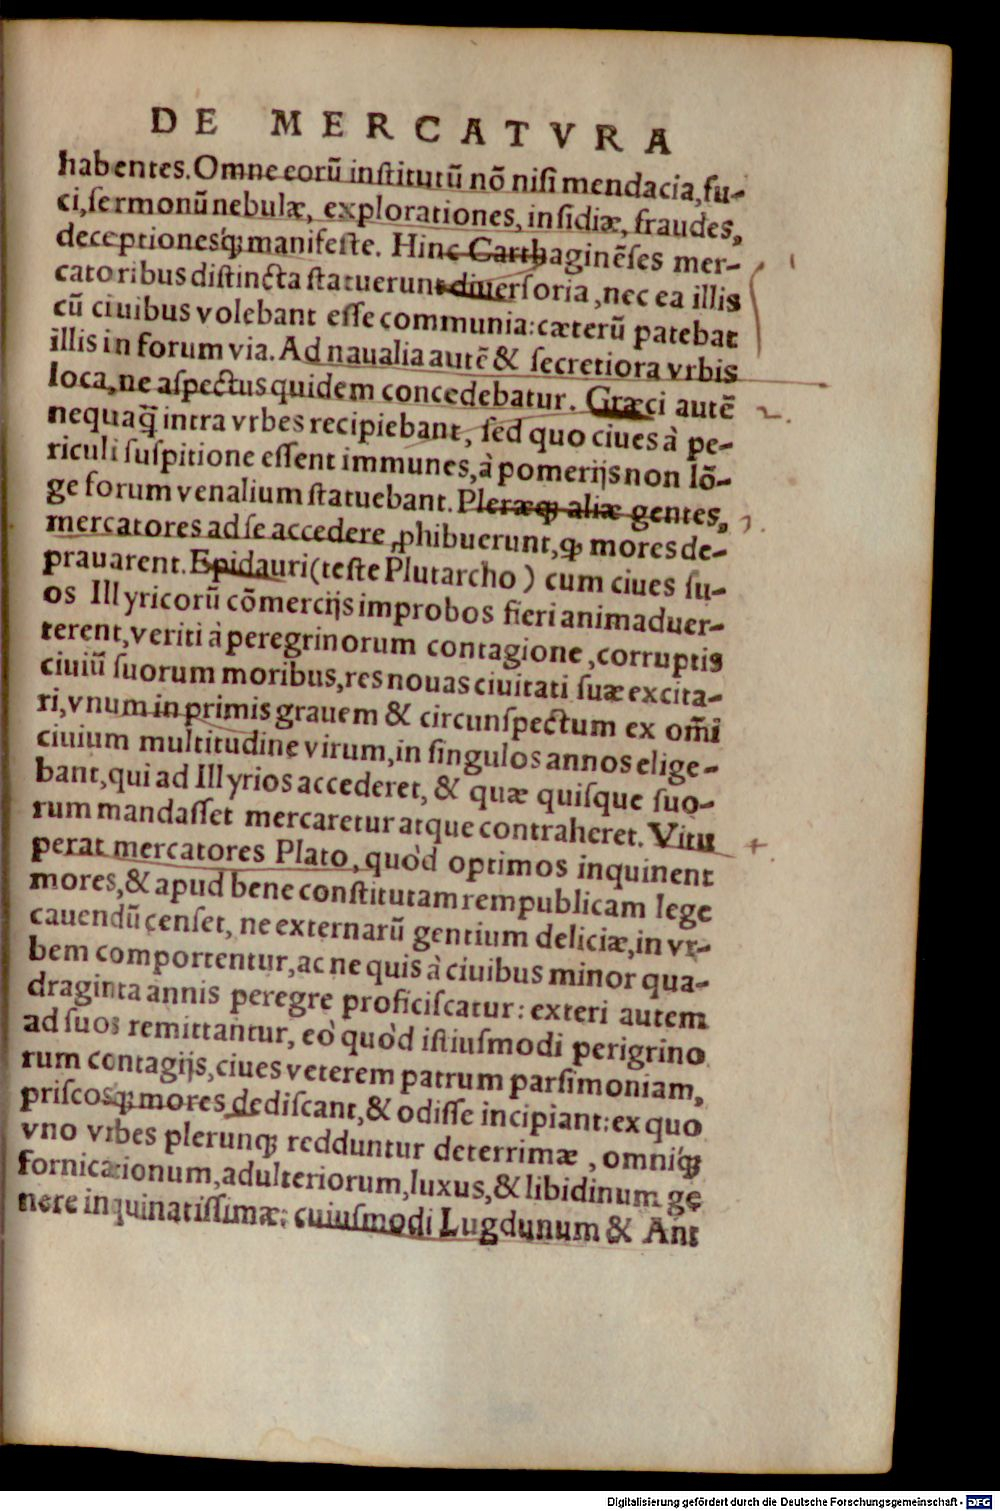 DE MERCATVRA
habentes. Omne eorũ institutũ nõ nisi mendacia, fu-
ci, sermonũ nebulæ, explorationes, insidiæ, fraudes,
deceptionesq́; manifeste. Hinc Carthaginẽses mer-
catoribus distincta statuerunt diuersoria, nec ea illis
cũ ciuibus volebant esse communia: cæterũ patebat
illis in forum via. Ad naualia autẽ & secretiora vrbis
loca, ne aspectus quidem concedebatur. Græci autẽ
nequaq̃ intra vrbes recipiebant, sed quo ciues à pe-
riculi suspitione essent immunes, à pomerijs non lõ-
ge forum venalium statuebant. Pleræq; aliæ gentes,
mercatores ad se accedere ꝓhibuerunt, ꝙ mores de-
prauarent. Epidauri (teste Plutarcho) cum ciues su-
os Illyricorũ cõmercijs improbos fieri animaduer-
terent, veriti à peregrinorum contagione, corruptis
ciuiũ suorum moribus, res nouas ciuitati suæ excita-
ri, vnum in primis grauem & circunspectum ex om̃i
ciuium multitudine virum, in singulos annos elige-
bant, qui ad Illyrios accederet, & quæ quisque suo-
rum mandasset mercaretur atque contraheret. Vitu
perat mercatores Plato, quòd optimos inquinent
mores, & apud bene constitutam rempublicam lege
cauendũ censet, ne externarũ gentium deliciæ, in vr-
bem comportentur, ac ne quis à ciuibus minor qua-
draginta annis peregre proficiscatur: exteri autem
ad suos remittantur, eò quòd istiusmodi perigrino
rum contagijs, ciues veterem patrum parsimoniam,
priscosq; mores dediscant, & odisse incipiant: ex quo
vno vrbes plerunq; redduntur deterrimæ, omniq́;
fornicationum, adulteriorum, luxus, & libidinum ge
nere inquinatissimæ: cuiusmodi Lugdunum & Ant
1
2.
3.
4
Digitalisierung gefördert durch die Deutsche Forschungsgemeinschaft - DFG